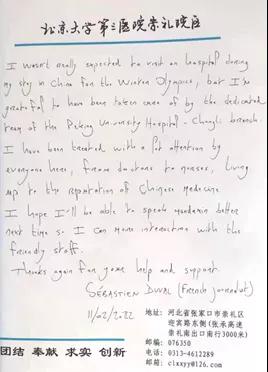 北京大学第三医院崇礼院区
I wasn't really expected to visit an hospital during
my stay in China for the Winter Olympics, but I'm
grateful to have been taken care of by the dedicated
team of the Peking University Hospital - Chongli branch.
I have been treated with a lot attention by
everyone here, from doctors to nurses, living
up to the reputation of Chinese medicine.
I hope I'll be able to speak mandarin better
next time so I can more interaction with the
friendly staff.
Thanks again for your help and support.
SÉBASTIEN DUVAL (French journalist)
11/02/2022
地址: 河北省张家口市崇礼区
迎宾路东侧(张承高速
崇礼南出口南行3000米)
邮编: 076350
电话: 0313-4612289
邮箱: clxxyy@126.com
团结 奉献 求实 创新